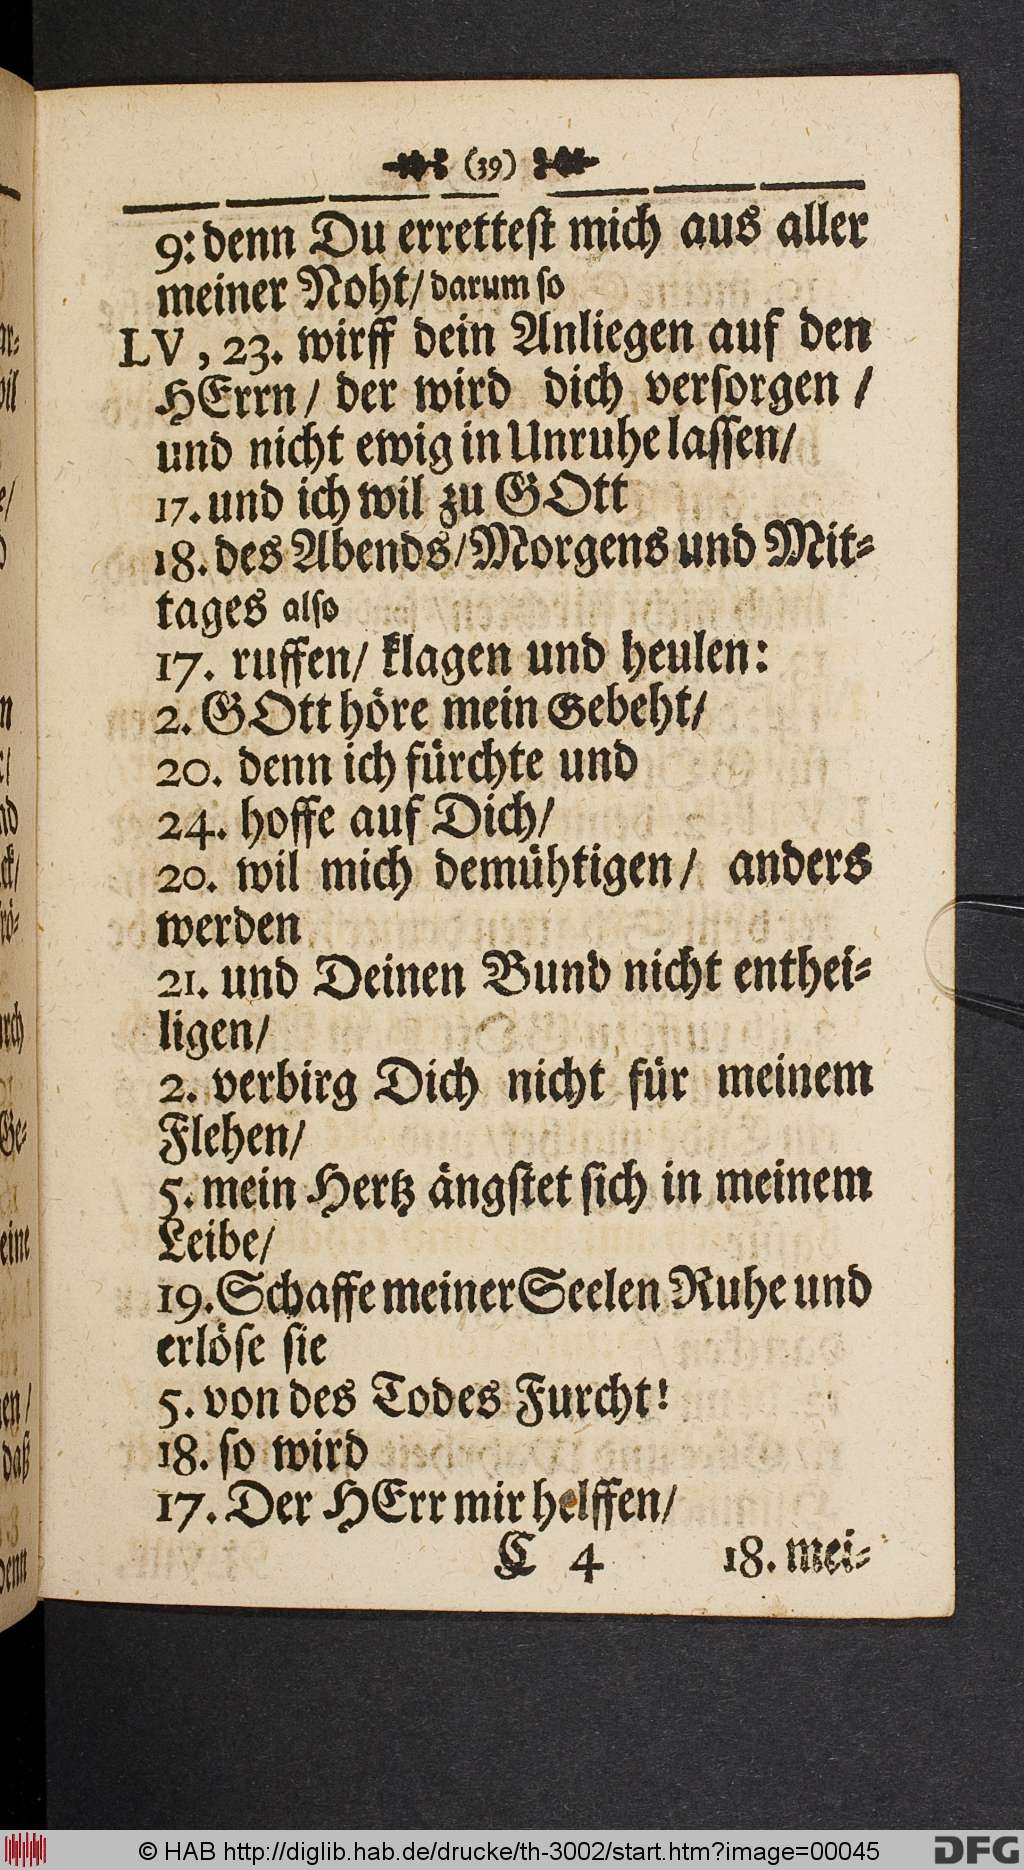 (39)
9: denn Du errettest mich aus aller
meiner Noht/ darum so
LV, 23. wirff dein Anliegen auf den
HErrn/ der wird dich versorgen/
und nicht ewig in Unruhe lassen/
17. und ich wil zu GOtt
18. des Abends/ Morgens und Mit-
tages also
17. ruffen/ klagen und heulen:
2. GOtt höre mein Gebeht/
20. denn ich fürchte und
24. hoffe auf Dich/
20. wil mich demühtigen/ anders
werden
21. und Deinen Bund nicht enthei-
ligen/
2. verbirg Dich nicht für meinem
Flehen/
5. mein Hertz ängstet sich in meinem
Leibe/
19. Schaffe meiner Seelen Ruhe und
erlöse sie
5. von des Todes Furcht!
18. so wird
17. Der HErr mir helffen/
C 4 18. mei-
© HAB http://diglib.hab.de/drucke/th-3002/start.htm?image=00045
DFG